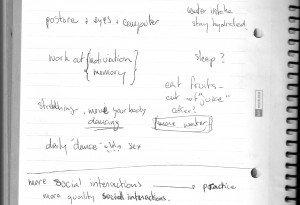 posture + eyes + computer
water intake
stay hydrated
work out { motivation
memory
sleep?
eat fruits -
cut "juice"
stretching, move your body
dancing
more water
daily "dance" sex
more social interactions → practice
more quality social interactions.